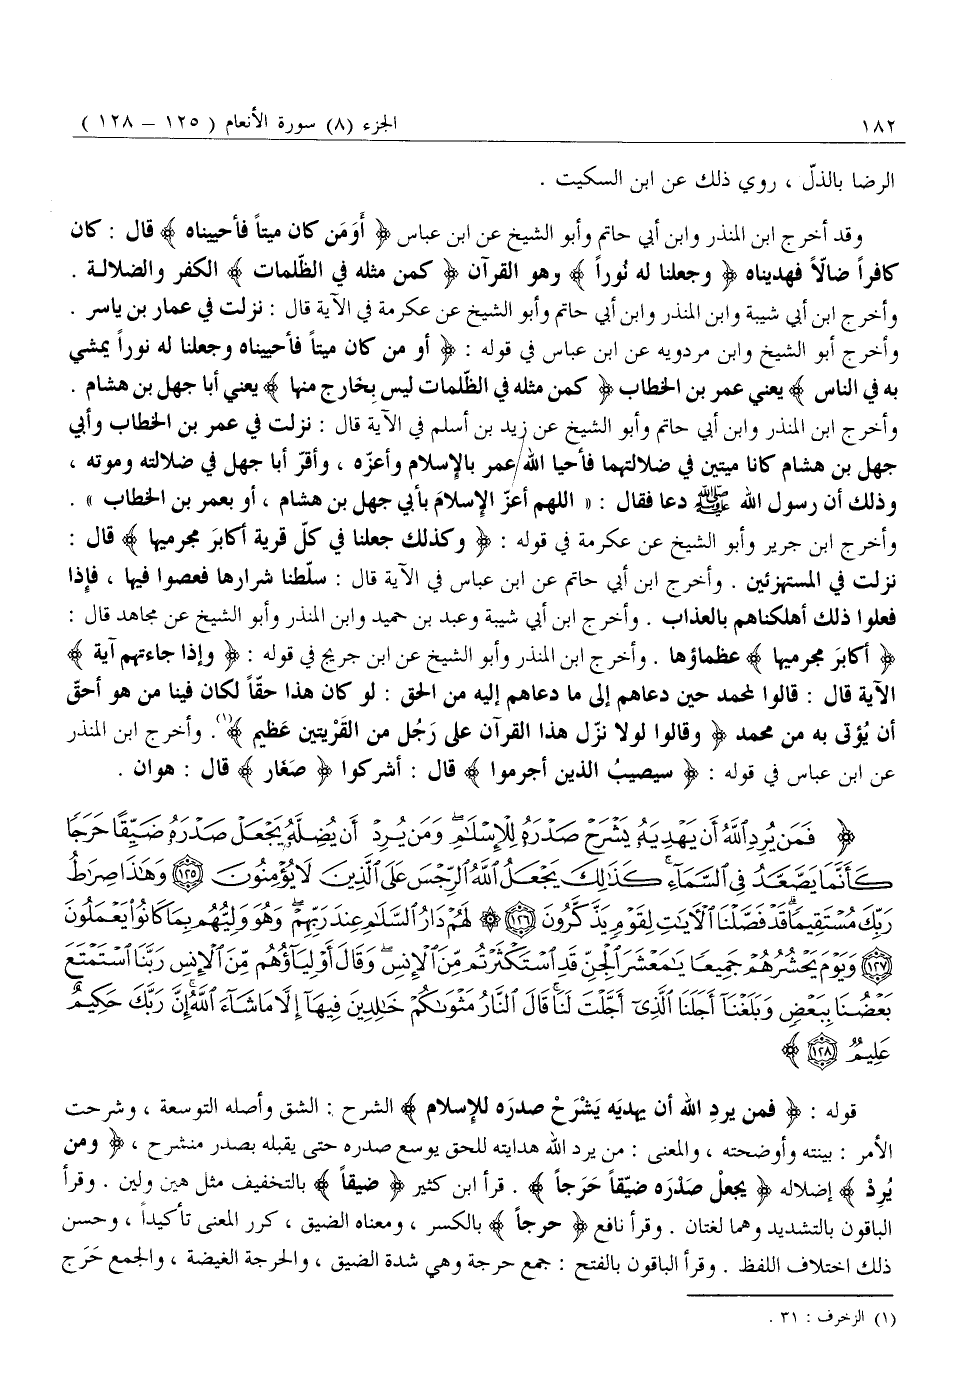 ١٨٢ الجزء (٨) سورة الأنعام ( ١٢٥ – ١٢٨ )
الرضا بالذلّ ، روي ذلك عن ابن السكيت .
وقد أخرج ابن المنذر وابن أبي حاتم وأبو الشيخ عن ابن عباس ﴿ أَوَمَن كان ميتاً فأحييناه ﴾ قال : كان
كافراً ضالّاً فهديناه ﴿ وجعلنا له نُوراً ﴾ وهو القرآن ﴿ كمن مثله في الظّلمات ﴾ الكفر والضلالة .
وأخرج ابن أبي شيبة وابن المنذر وابن أبي حاتم وأبو الشيخ عن عكرمة في الآية قال : نزلت في عمار بن ياسر .
وأخرج أبو الشيخ وابن مردويه عن ابن عباس في قوله : ﴿ أو من كان ميتاً فأحييناه وجعلنا له نوراً يمشي
به في الناس ﴾ يعني عمر بن الخطاب ﴿ كمن مثله في الظّلمات ليس بِخارج منها ﴾ يعني أبا جهل بن هشام .
وأخرج ابن المنذر وابن أبي حاتم وأبو الشيخ عن زيد بن أسلم في الآية قال : نزلت في عمر بن الخطاب وأبي
جهل بن هشام كانا ميتين في ضلالتهما فأحيا الله عمر بالإسلام وأعزّه ، وأقرّ أبا جهل في ضلالته وموته ،
وذلك أن رسول الله ﷺ دعا فقال : « اللهم أعزّ الإسلامَ بأبي جهل بن هشام ، أو بعمر بن الخطاب » .
وأخرج ابن جرير وأبو الشيخ عن عكرمة في قوله : ﴿ وكذلك جعلنا في كلّ قرية أكابرَ مجرميها ﴾ قال :
نزلت في المستهزئين . وأخرج ابن أبي حاتم عن ابن عباس في الآية قال : سلّطنا شرارها فعصوا فيها ، فإذا
فعلوا ذلك أهلكناهم بالعذاب . وأخرج ابن أبي شيبة وعبد بن حميد وابن المنذر وأبو الشيخ عن مجاهد قال :
﴿ أكابرَ مجرميها ﴾ عظماؤها . وأخرج ابن المنذر وأبو الشيخ عن ابن جريج في قوله : ﴿ وإذا جاءتهم آية ﴾
الآية قال : قالوا لمحمد حين دعاهم إلى ما دعاهم إليه من الحق : لو كان هذا حقّاً لكان فينا من هو أحقّ
أن يُؤتى به من محمد ﴿ وقالوا لولا نزّل هذا القرآن على رَجُل من القَرْيتين عَظيم ﴾(١). وأخرج ابن المنذر
عن ابن عباس في قوله : ﴿ سيصيبُ الذين أجرموا ﴾ قال : أشركوا ﴿ صَغَار ﴾ قال : هوان .
﴿ فَمَن يُرِدِ ٱللَّهُ أَن يَهْدِيَهُۥ يَشْرَحْ صَدْرَهُۥ لِلْإِسْلَٰمِ ۖ وَمَن يُرِدْ أَن يُضِلَّهُۥ يَجْعَلْ صَدْرَهُۥ ضَيِّقًا حَرَجًا
كَأَنَّمَا يَصَّعَّدُ فِى ٱلسَّمَآءِ ۚ كَذَٰلِكَ يَجْعَلُ ٱللَّهُ ٱلرِّجْسَ عَلَى ٱلَّذِينَ لَا يُؤْمِنُونَ ۝١٢٥ وَهَٰذَا صِرَٰطُ
رَبِّكَ مُسْتَقِيمًا ۗ قَدْ فَصَّلْنَا ٱلْءَايَٰتِ لِقَوْمٍ يَذَّكَّرُونَ ۝١٢٦ ۞ لَهُمْ دَارُ ٱلسَّلَٰمِ عِندَ رَبِّهِمْ ۖ وَهُوَ وَلِيُّهُم بِمَا كَانُوا۟ يَعْمَلُونَ
۝١٢٧ وَيَوْمَ يَحْشُرُهُمْ جَمِيعًا يَٰمَعْشَرَ ٱلْجِنِّ قَدِ ٱسْتَكْثَرْتُم مِّنَ ٱلْإِنسِ ۖ وَقَالَ أَوْلِيَآؤُهُم مِّنَ ٱلْإِنسِ رَبَّنَا ٱسْتَمْتَعَ
بَعْضُنَا بِبَعْضٍ وَبَلَغْنَآ أَجَلَنَا ٱلَّذِىٓ أَجَّلْتَ لَنَا ۚ قَالَ ٱلنَّارُ مَثْوَىٰكُمْ خَٰلِدِينَ فِيهَآ إِلَّا مَا شَآءَ ٱللَّهُ ۗ إِنَّ رَبَّكَ حَكِيمٌ
عَلِيمٌ ۝١٢٨ ﴾
قوله : ﴿ فمن يردِ الله أن يهديَه يَشْرَحْ صدرَه للإسلام ﴾ الشرح : الشق وأصله التوسعة ، وشرحت
الأمر : بينته وأوضحته ، والمعنى : من يرد الله هدايته للحق يوسع صدره حتى يقبله بصدر منشرح ، ﴿ ومن
يُرِدْ ﴾ إضلاله ﴿ يجعلْ صَدْرَه ضَيّقاً حَرَجاً ﴾ . قرأ ابن كثير ﴿ ضيقاً ﴾ بالتخفيف مثل هين ولين . وقرأ
الباقون بالتشديد وهما لغتان . وقرأ نافع ﴿ حرجاً ﴾ بالكسر ، ومعناه الضيق ، كرر المعنى تأكيداً ، وحسن
ذلك اختلاف اللفظ . وقرأ الباقون بالفتح : جمع حرجة وهي شدة الضيق ، والحرجة الغيضة ، والجمع حَرَج
(١) الزخرف : ٣١ .